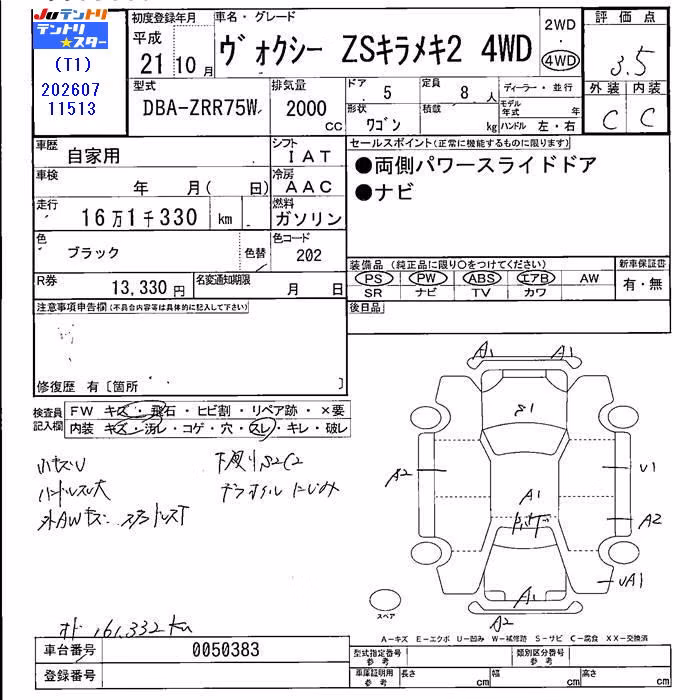 JUテントリ
テントリ
★スター
(T1)
202607
11513
初度登録年月
平成
21 10 月
車名・グレード
ヴォクシー ZSキラメキ2 4WD
2WD
・
4WD
評価点
3.5
外装 内装
C C
型式
DBA-ZRR75W
排気量
2000
CC
ドア
5
定員
8 人
形状
ワゴン
積載
kg
ディーラー・並行
モデル年式 年
ハンドル 左・右
車歴
自家用
シフト
IAT
車検
年 月( 日)
冷房
AAC
走行
16万1千330 km
燃料
ガソリン
色
ブラック
色替
色コード
202
R券
13,330 円
名変通知期限
月 日
セールスポイント(正常に機能するものに限ります)
●両側パワースライドドア
●ナビ
装備品 (純正品に限り○をつけてください)
PS PW ABS エアB AW
SR ナビ TV カワ
新車保証書
有・無
後日品
注意事項申告欄(不具合内容等は具体的に記入して下さい)
修復歴 有〔箇所 〕
検査員
記入欄
FW キズ・飛石・ヒビ割・リペア跡・×要
内装 キズ・汚レ・コゲ・穴・スレ・キレ・破レ
小キズU
下廻りS2C2
ハンドルスレ大
外AWキズ
A1 A1
S1
A2
U1
A1
A2
UA1
A1
A2
スペア
161,332km
A－キズ E－エクボ U－凹み W－補修跡 S－サビ C－腐食 XX－交換済
車台番号
0050383
登録番号
型式指定番号
参考
類別区分番号
参考
車庫証明用
参考
長さ cm
幅 cm
高さ cm